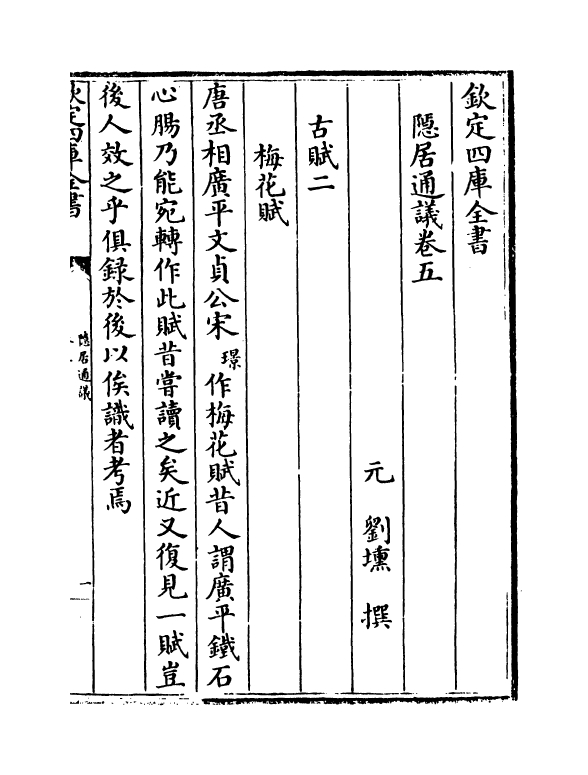 欽定四庫全書
隱居通議卷五
元 劉壎 撰
古賦二
梅花賦
唐丞相廣平文貞公宋璟作梅花賦昔人謂廣平鐵石
心腸乃能宛轉作此賦昔嘗讀之矣近又復見一賦豈
後人效之乎俱録於後以俟識者考焉
欽定四庫全書
隱居通議
一